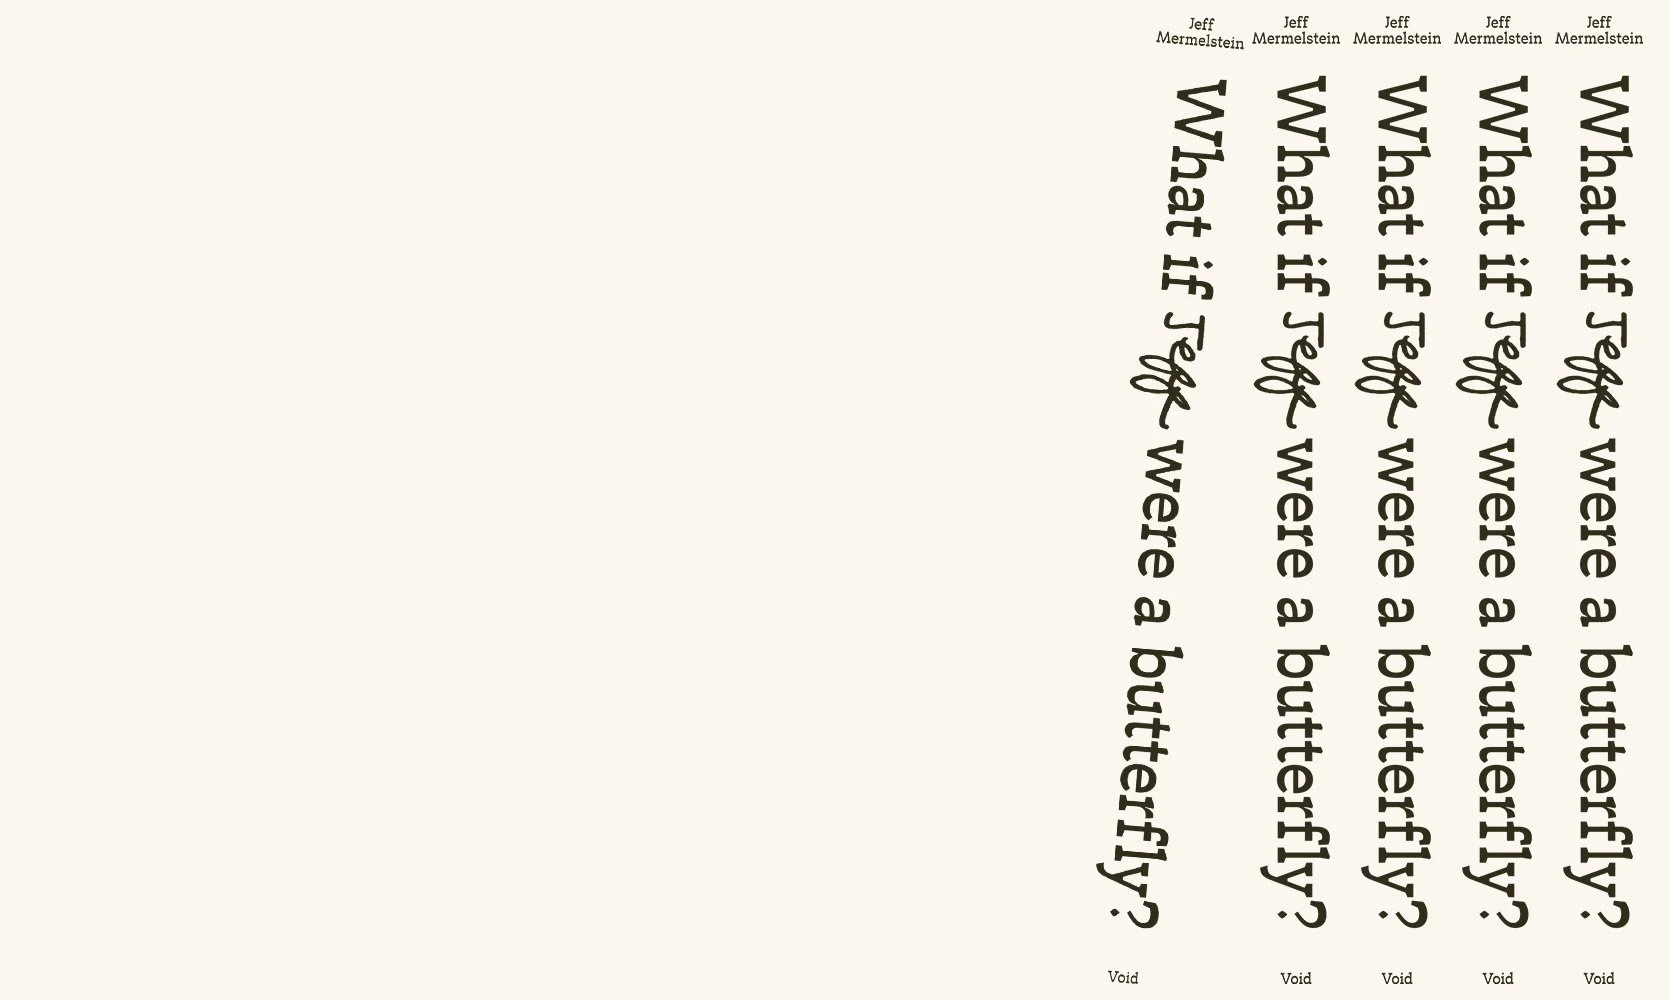 Jeff
Mermelstein
What if Jeff were a butterfly?
Void
Jeff
Mermelstein
What if Jeff were a butterfly?
Void
Jeff
Mermelstein
What if Jeff were a butterfly?
Void
Jeff
Mermelstein
What if Jeff were a butterfly?
Void
Jeff
Mermelstein
What if Jeff were a butterfly?
Void